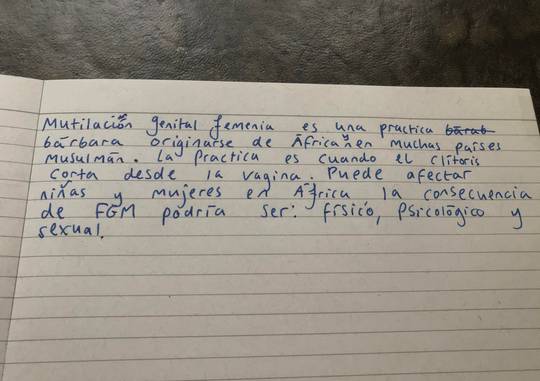 Mutilación genital femenia es una practica barab
bárbara originarse de África y en muchas países
musulmán. La Practica es cuando el clítoris
corta desde la vagina. Puede afectar
niñas y mujeres en África la consecuencia
de FGM podría ser: físico, psicológico y
sexual.